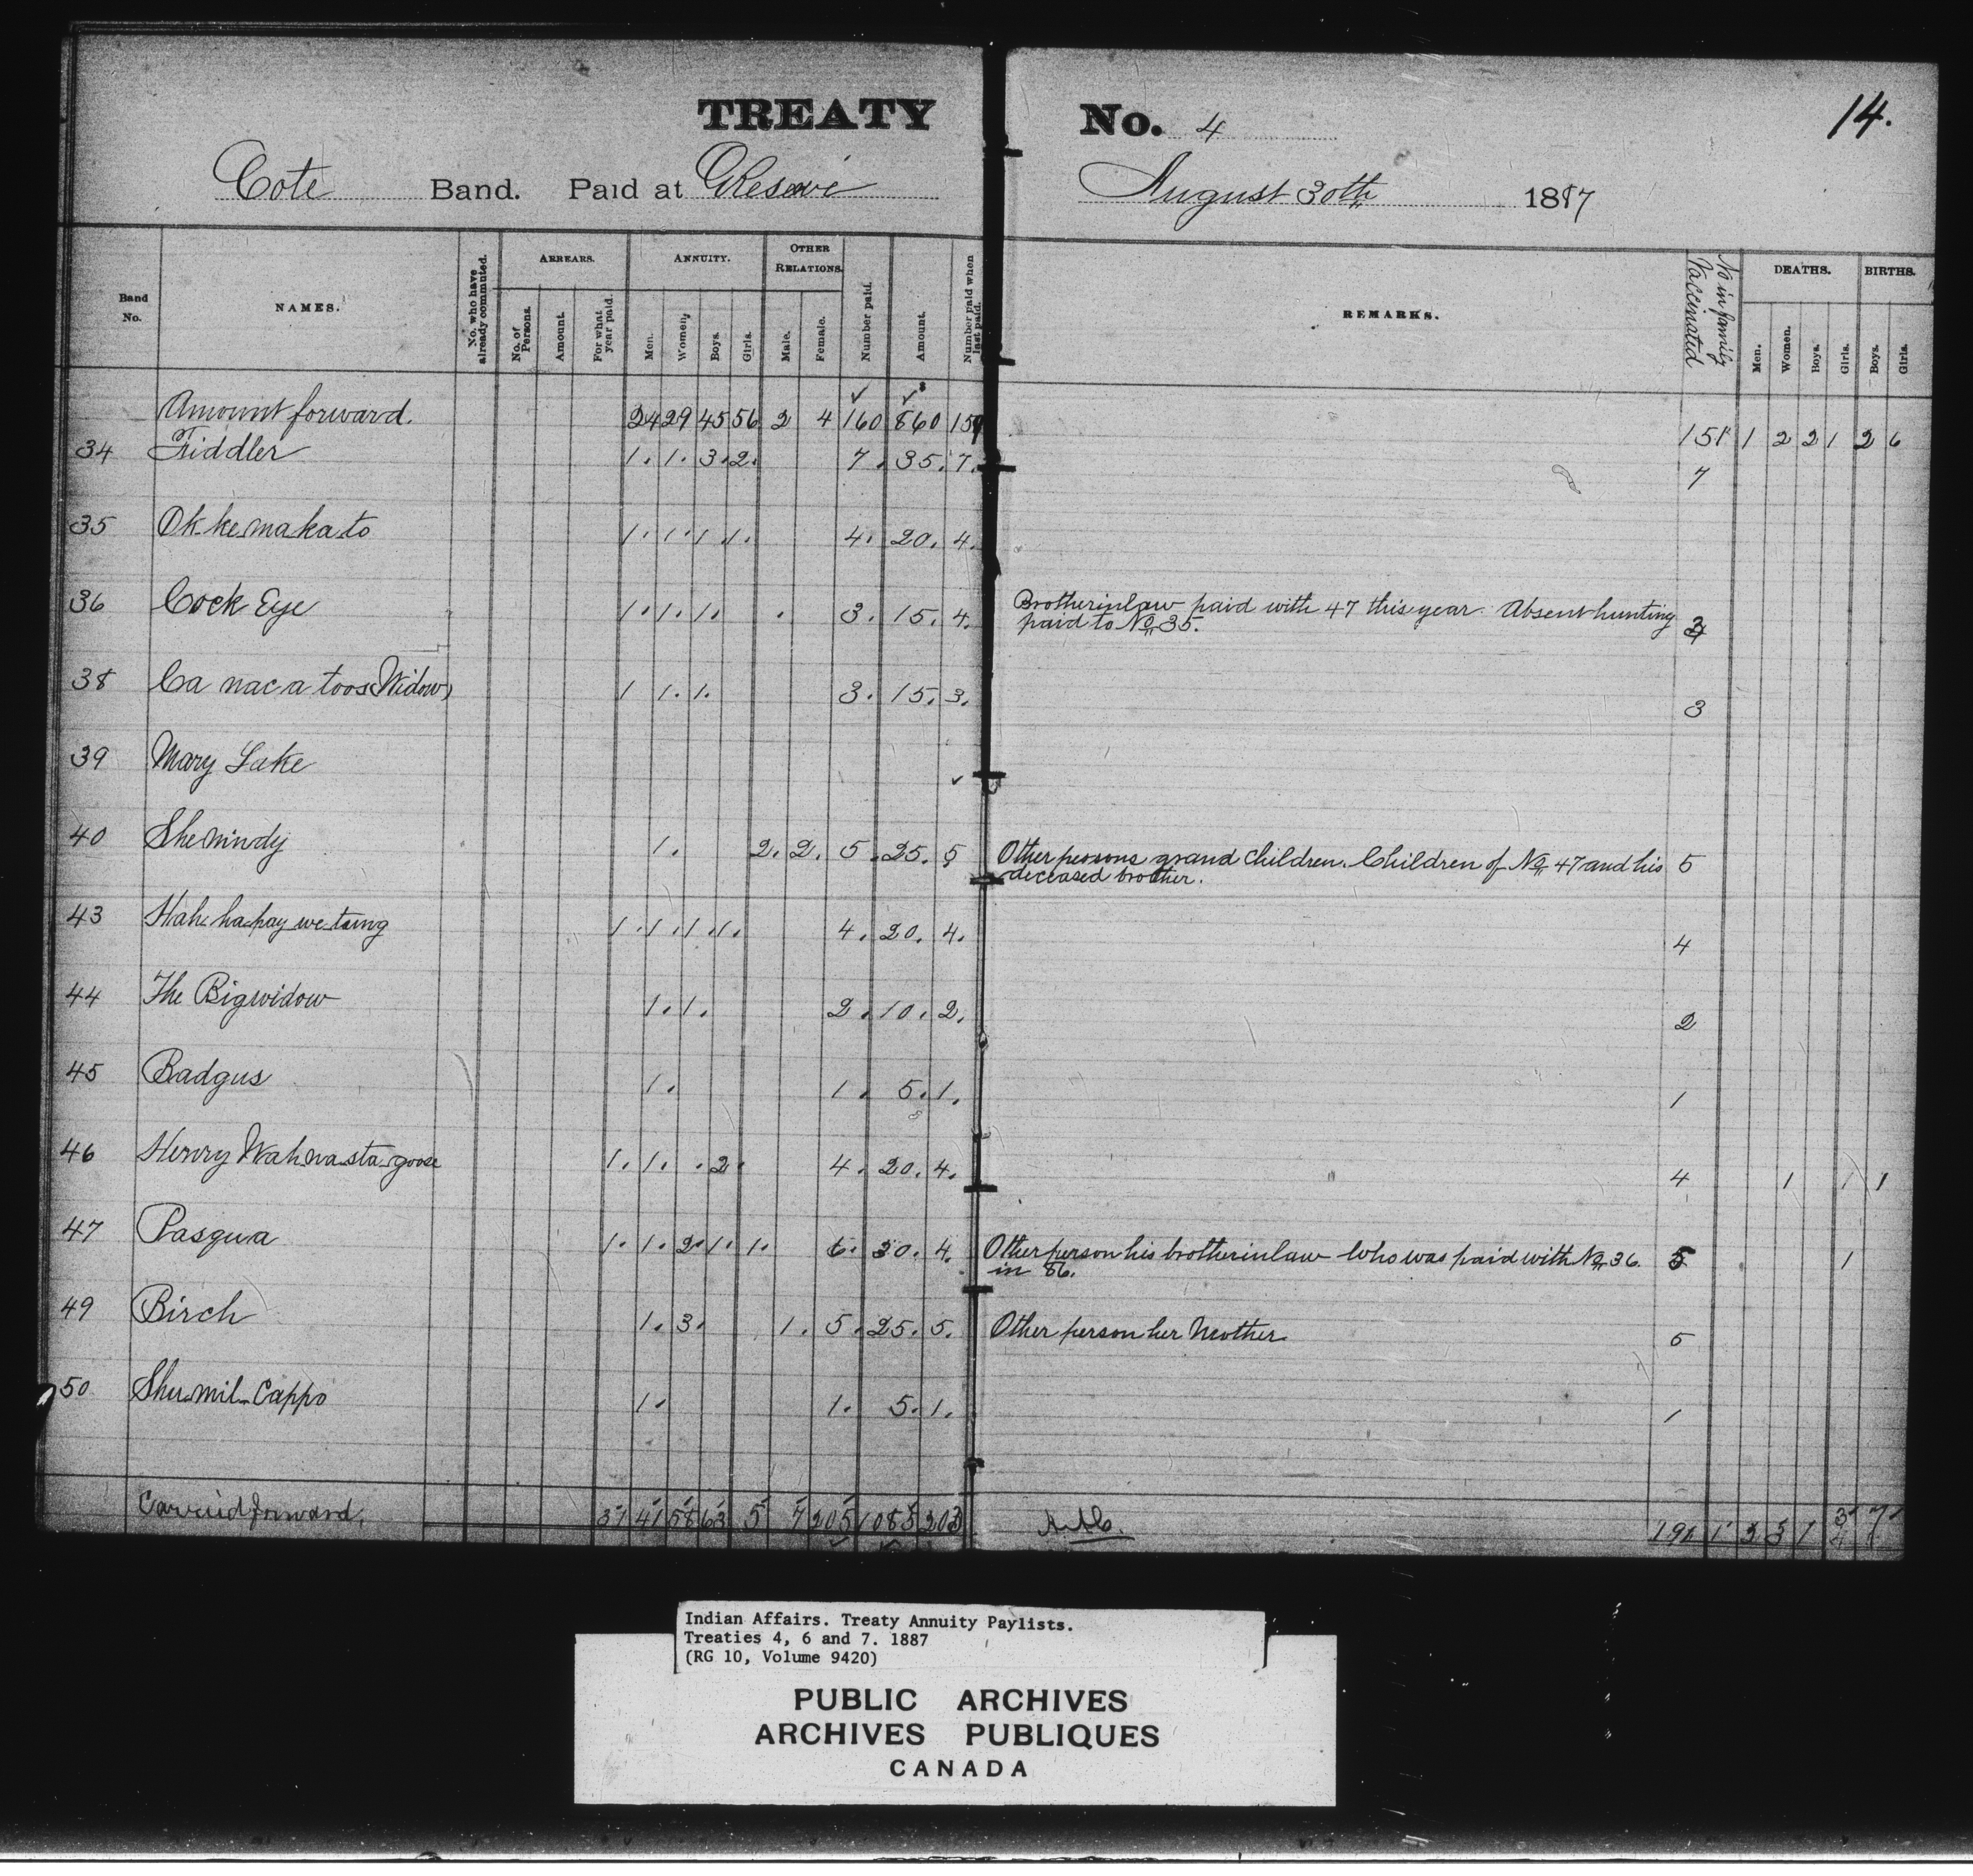 TREATY No. 4
14.
Cote Band. Paid at Reserve August 30th 1887
Band No. NAMES. No. who have already commuted. ARREARS. No. of Persons. Amount. For what year paid. ANNUITY. Men. Women. Boys. Girls. OTHER RELATIONS. Male. Female. Number paid. Amount. Number paid when last paid. REMARKS. No in family Vaccinated DEATHS. Men. Women. Boys. Girls. BIRTHS. Boys. Girls.
Amount forward. 24 29 45 56 2 4 160 860 159 151 1 2 2 1 2 6
34 Fiddler 1. 1. 3. 2. 7. 35. 7. 7
35 Ok ke maka to 1. 1. 1 1. 4. 20. 4.
36 Cock Eye 1. 1. 1. 3. 15. 4. Brotherinlaw paid with 47 this year. Absent hunting
paid to No 35. 3
38 Ca nac a toos (Widow) 1 1. 1. 3. 15. 3. 3
39 Mary Lake
40 Shemindy 1. 2. 2. 5. 25. 5 Other persons grand children. Children of No 47 and his 5
deceased brother.
43 1. 1. 1. 1. 4. 20. 4. 4
44 The Bigwidow 1. 1. 2. 10. 2. 2
45 Badgus 1. 1. 5. 1. 1
46 Henry Wahwastagoose 1. 1. 2. 4. 20. 4. 4 1 1 1
47 Pasqua 1. 1. 2. 1. 1. 6. 30. 4. Other person his brotherinlaw who was paid with No 36. 5 1
in 86.
49 Birch 1. 3. 1. 5. 25. 5. Other person her Mother 5
50 Shu-mil-Cappo 1. 1. 5. 1. 1
Carried forward. 37 41 58 63 5 7 205 1085 203
Indian Affairs. Treaty Annuity Paylists.
Treaties 4, 6 and 7. 1887
(RG 10, Volume 9420)
PUBLIC ARCHIVES
ARCHIVES PUBLIQUES
CANADA